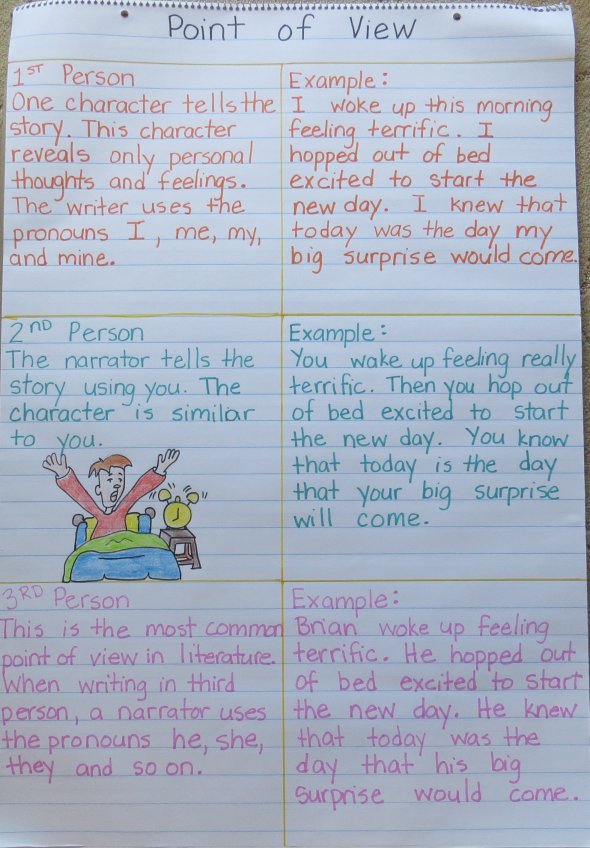 Point of View
1ST Person
One character tells the
story. This character
reveals only personal
thoughts and feelings.
The writer uses the
pronouns I, me, my,
and mine.
Example:
I woke up this morning
feeling terrific. I
hopped out of bed
excited to start the
new day. I knew that
today was the day my
big surprise would come.
2ND Person
The narrator tells the
story using you. The
character is similar
to you.
Example:
You wake up feeling really
terrific. Then you hop out
of bed excited to start
the new day. You know
that today is the day
that your big surprise
will come.
3RD Person
This is the most common
point of view in literature.
When writing in third
person, a narrator uses
the pronouns he, she,
they and so on.
Example:
Brian woke up feeling
terrific. He hopped out
of bed excited to start
the new day. He knew
that today was the
day that his big
surprise would come.